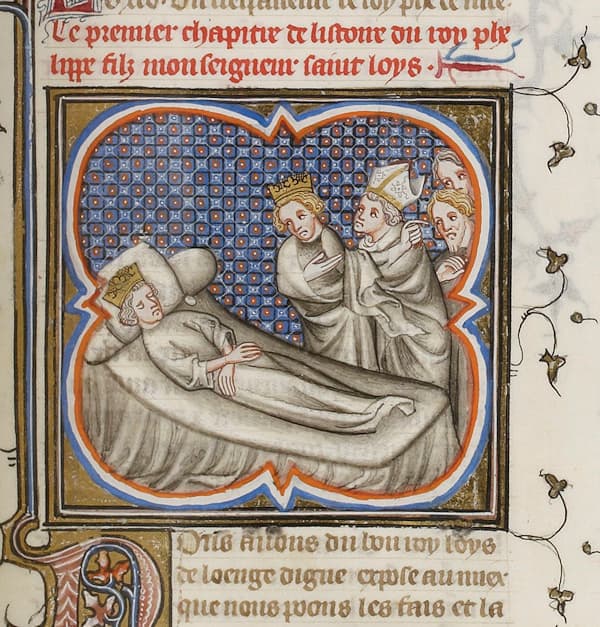 le roy phe le
Le premier chapitre de listoire du roy phe
lippe filz monseigneur saint loys.
Nous auons du bon roy loys
de loenge digne expose au miex
que nous poons les fais et la